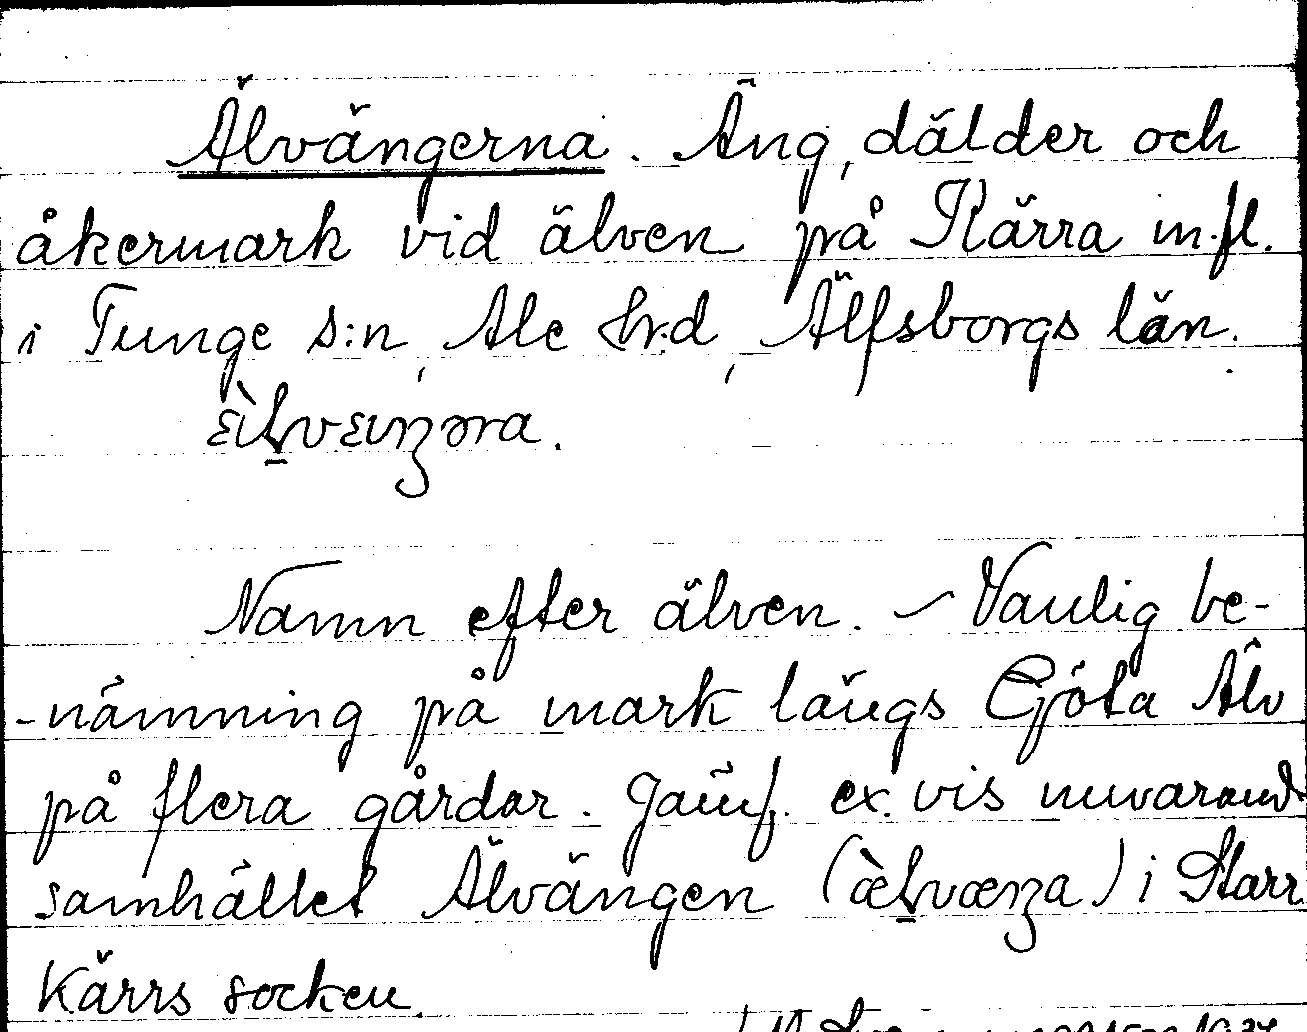 Älvängerna. Äng, dälder och
åkermark vid älven på Kärra m.fl.
i Tunge s:n, Ale hrd, Älfsborgs län.
Namn efter älven. – Vanlig be-
-nämning på mark längs Göta Älv
på flera gårdar. Jämf. ex. vis nuvarand
samhället Älvängen i Starr
kärrs socken.